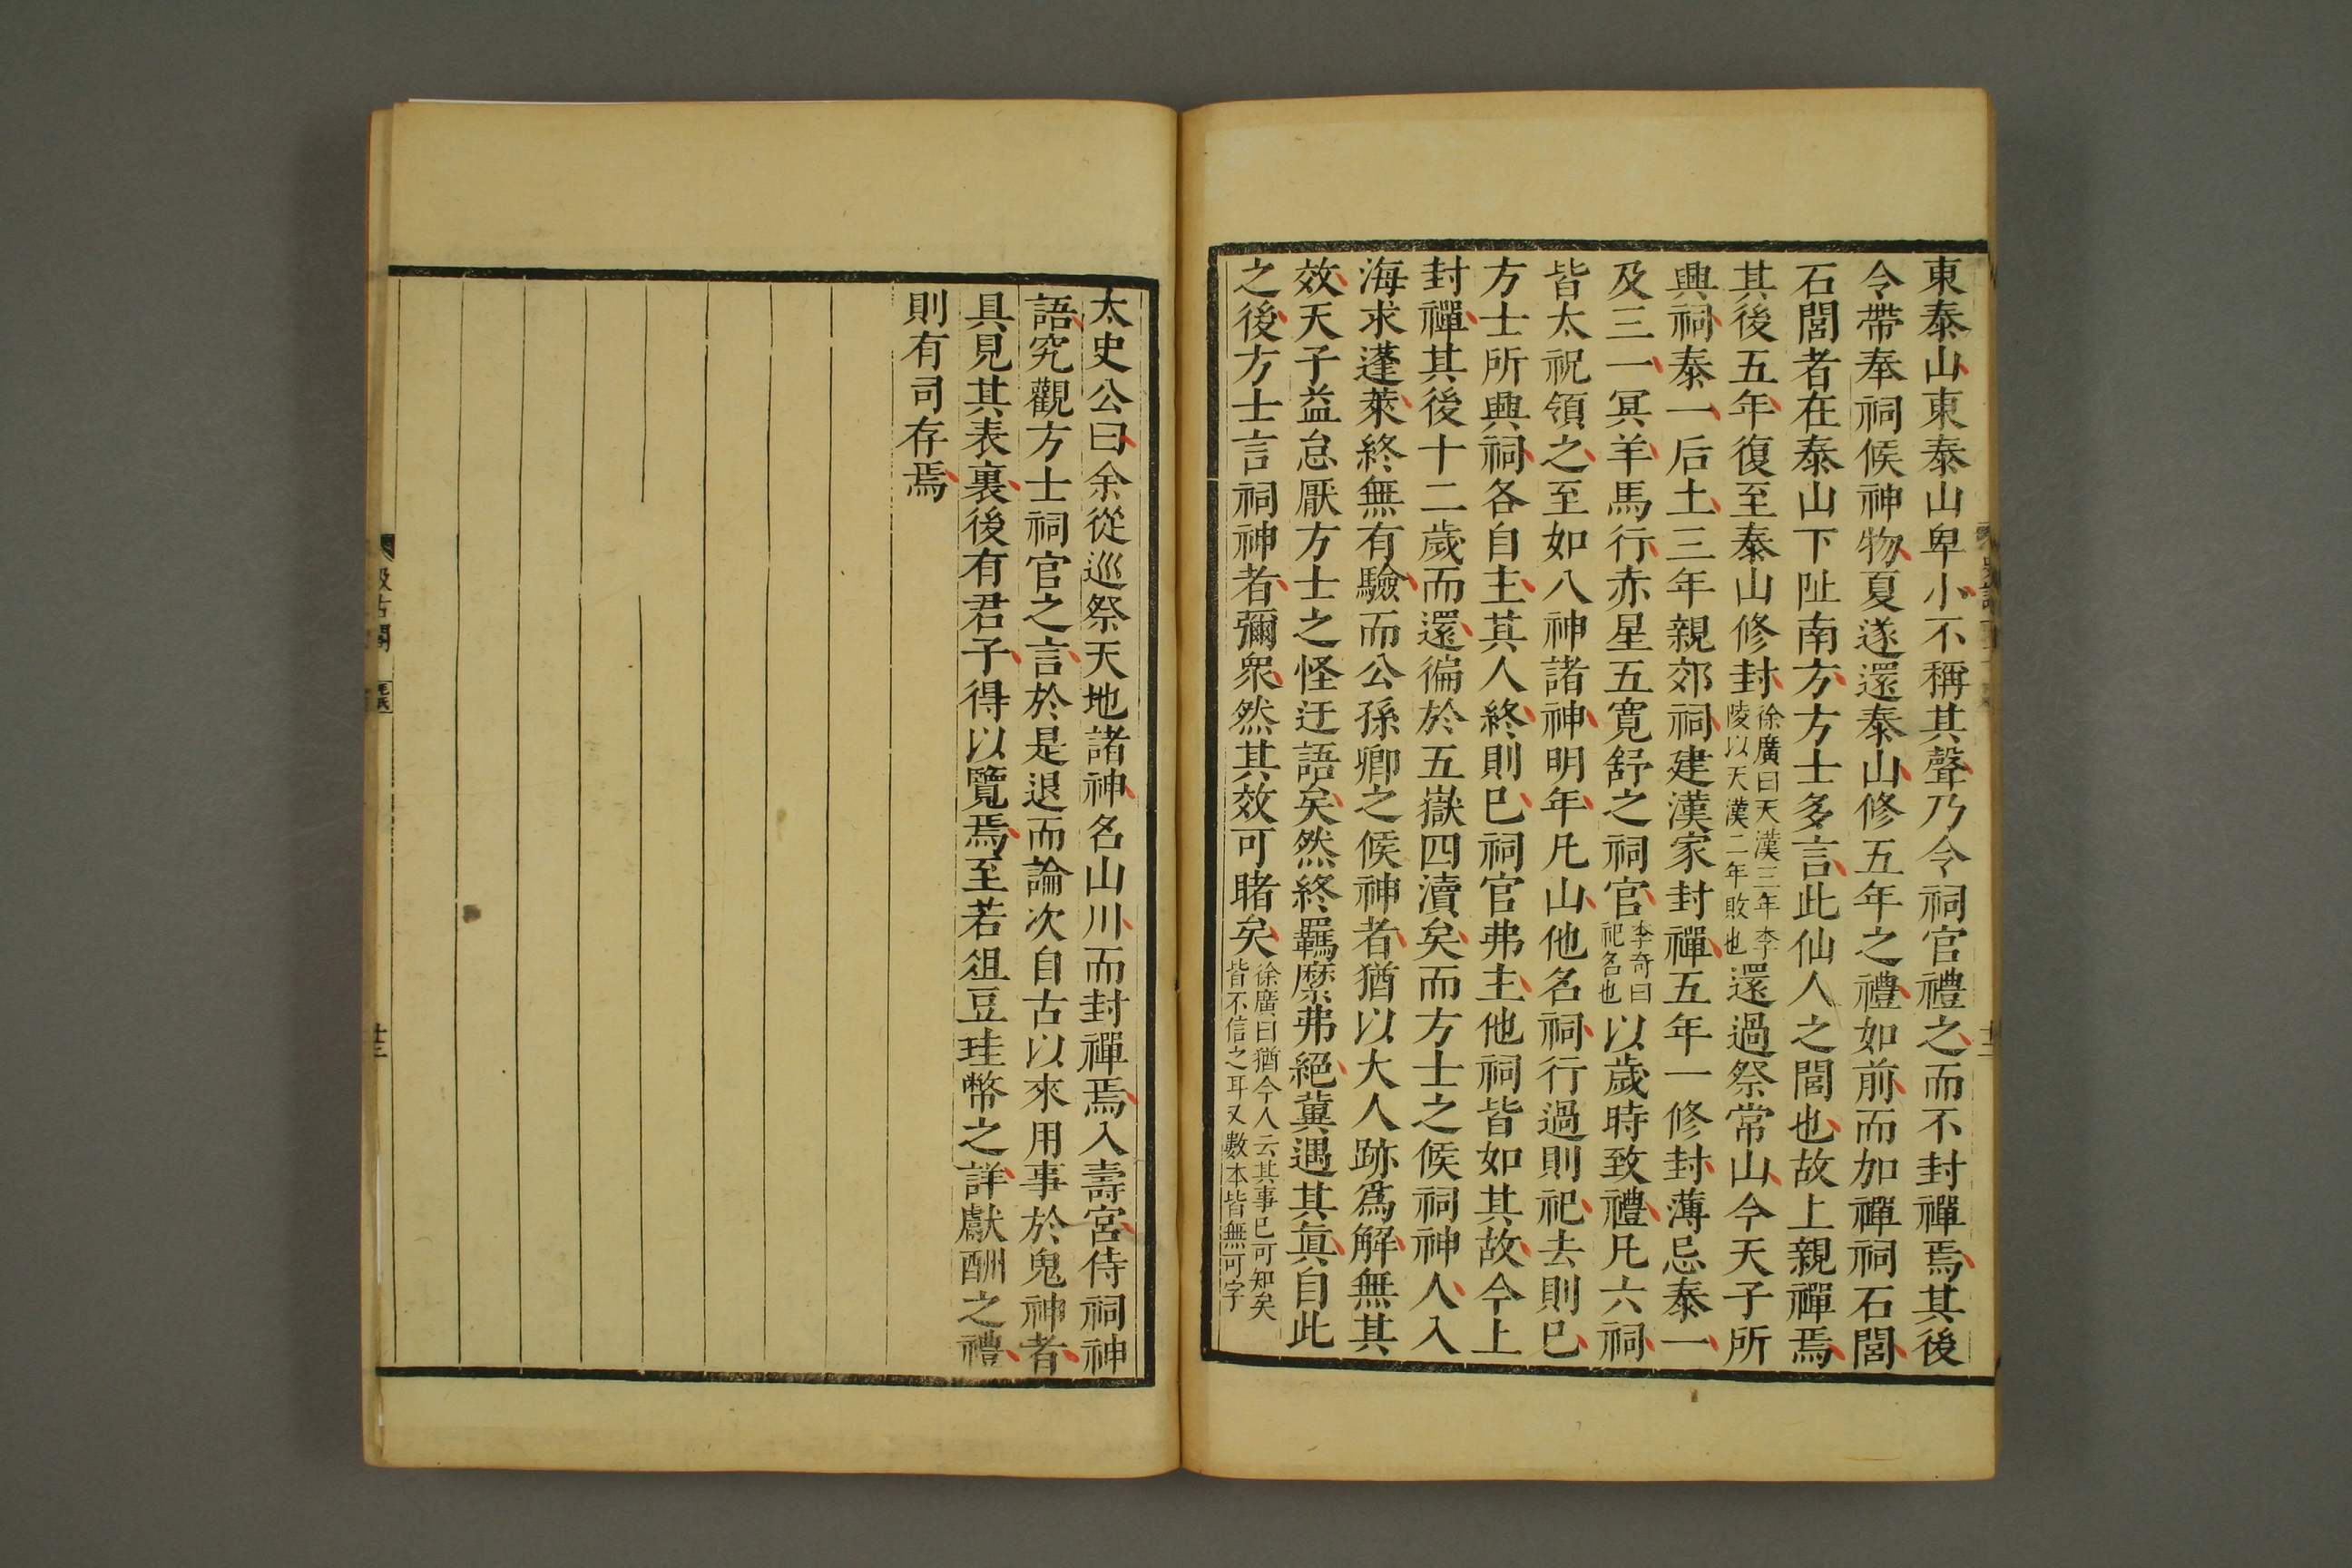 東泰山東泰山卑小不稱其聲乃令祠官禮之而不封禪焉其後
令帶奉祠候神物夏遂還泰山修五年之禮如前而加禪祠石閭
石閭者在泰山下阯南方方士多言此仙人之閭也故上親禪焉
其後五年復至泰山修封徐廣曰天漢三年李陵以天漢二年敗也還過祭常山今天子所
興祠泰一后土三年親郊祠建漢家封禪五年一修封薄忌泰一
及三一冥羊馬行赤星五寬舒之祠官李奇曰祀名也以歲時致禮凡六祠
皆太祝領之至如八神諸神明年凡山他名祠行過則祀去則已
方士所興祠各自主其人終則已祠官弗主他祠皆如其故今上
封禪其後十二歲而還徧於五嶽四瀆矣而方士之候祠神人入
海求蓬萊終無有驗而公孫卿之候神者猶以大人跡爲解無其
效天子益怠厭方士之怪迂語矣然終羈縻弗絕冀遇其眞自此
之後方士言祠神者彌衆然其效可睹矣徐廣曰猶今人云其事已可知矣皆不信之耳又數本皆無可字
太史公曰余從巡祭天地諸神名山川而封禪焉入壽宮侍祠神
語究觀方士祠官之言於是退而論次自古以來用事於鬼神者
具見其表裏後有君子得以覽焉至若俎豆珪幣之詳獻酬之禮
則有司存焉